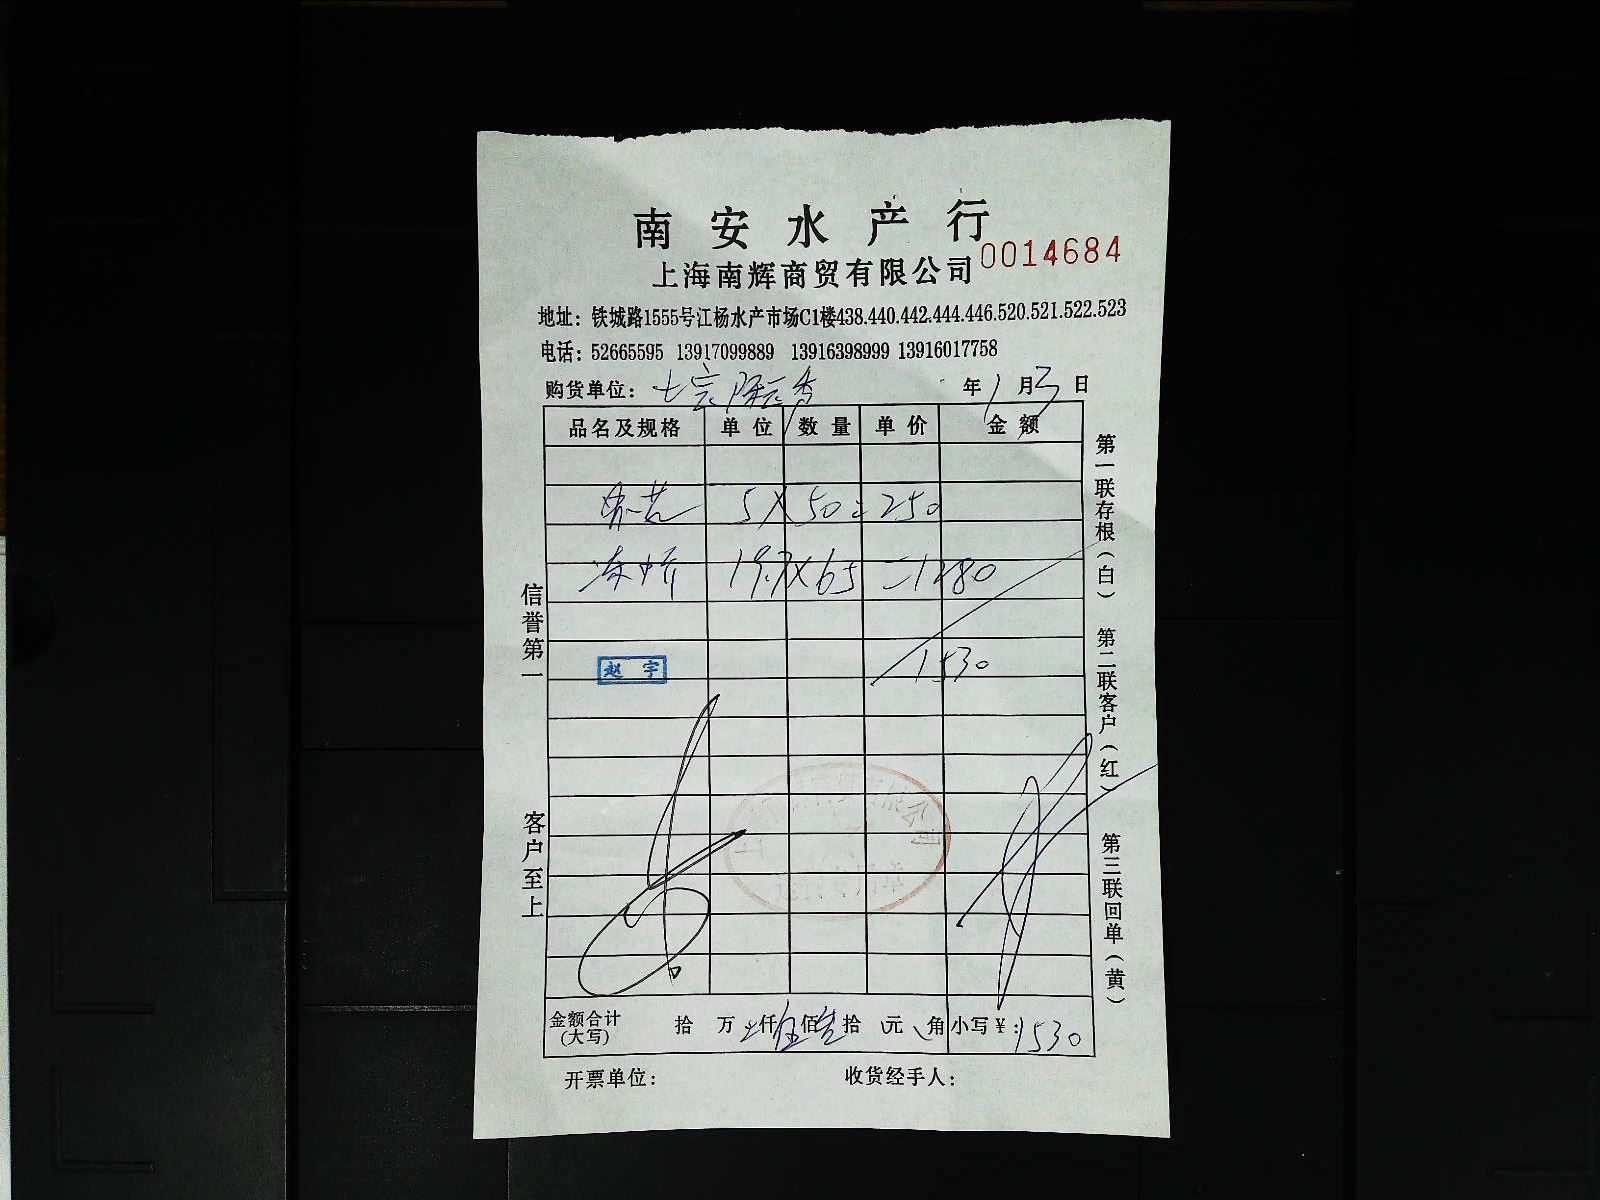 南安水产行
0014684
上海南辉商贸有限公司
地址：铁城路1555号江杨水产市场C1楼438.440.442.444.446.520.521.522.523
电话：52665595 13917099889 13916398999 13916017758
购货单位： 年 1 月 3 日
品名及规格 单位 数量 单价 金额
5 X 50 = 250
19.7 X 65 = 1280
1530
赵宇
有限公司
信誉第一
客户至上
第一联存根（白）
第二联客户（红）
第三联回单（黄）
金额合计（大写） 拾 万 仟 伍 佰 叁 拾 元 角 小写￥：1530
开票单位： 收货经手人：